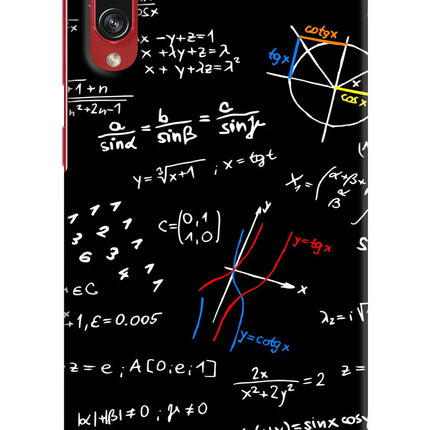 cosx
x - y + z = 1
x + λy + z = λ
x + y + λz = λ²
cotgx
tgx
x
cosx
+1+n
n²+2n-1
a/sinα = b/sinβ = c/sinγ
y = ³√x+1 ; x = tgt
X₁ = (α+β+
α
β
1 1 1
3 2 1
6 3 1
4 1
C = (0,1
1,0)
y
y=tgx
x
y=cotgx
∈C
+1, ε = 0.005
λ₂ = i√
z = e ; A[0;e;1]
2x/x²+2y² = 2
z =
|α|+|β| ≠ 0 ; γ ≠ 0
= sinx cosy